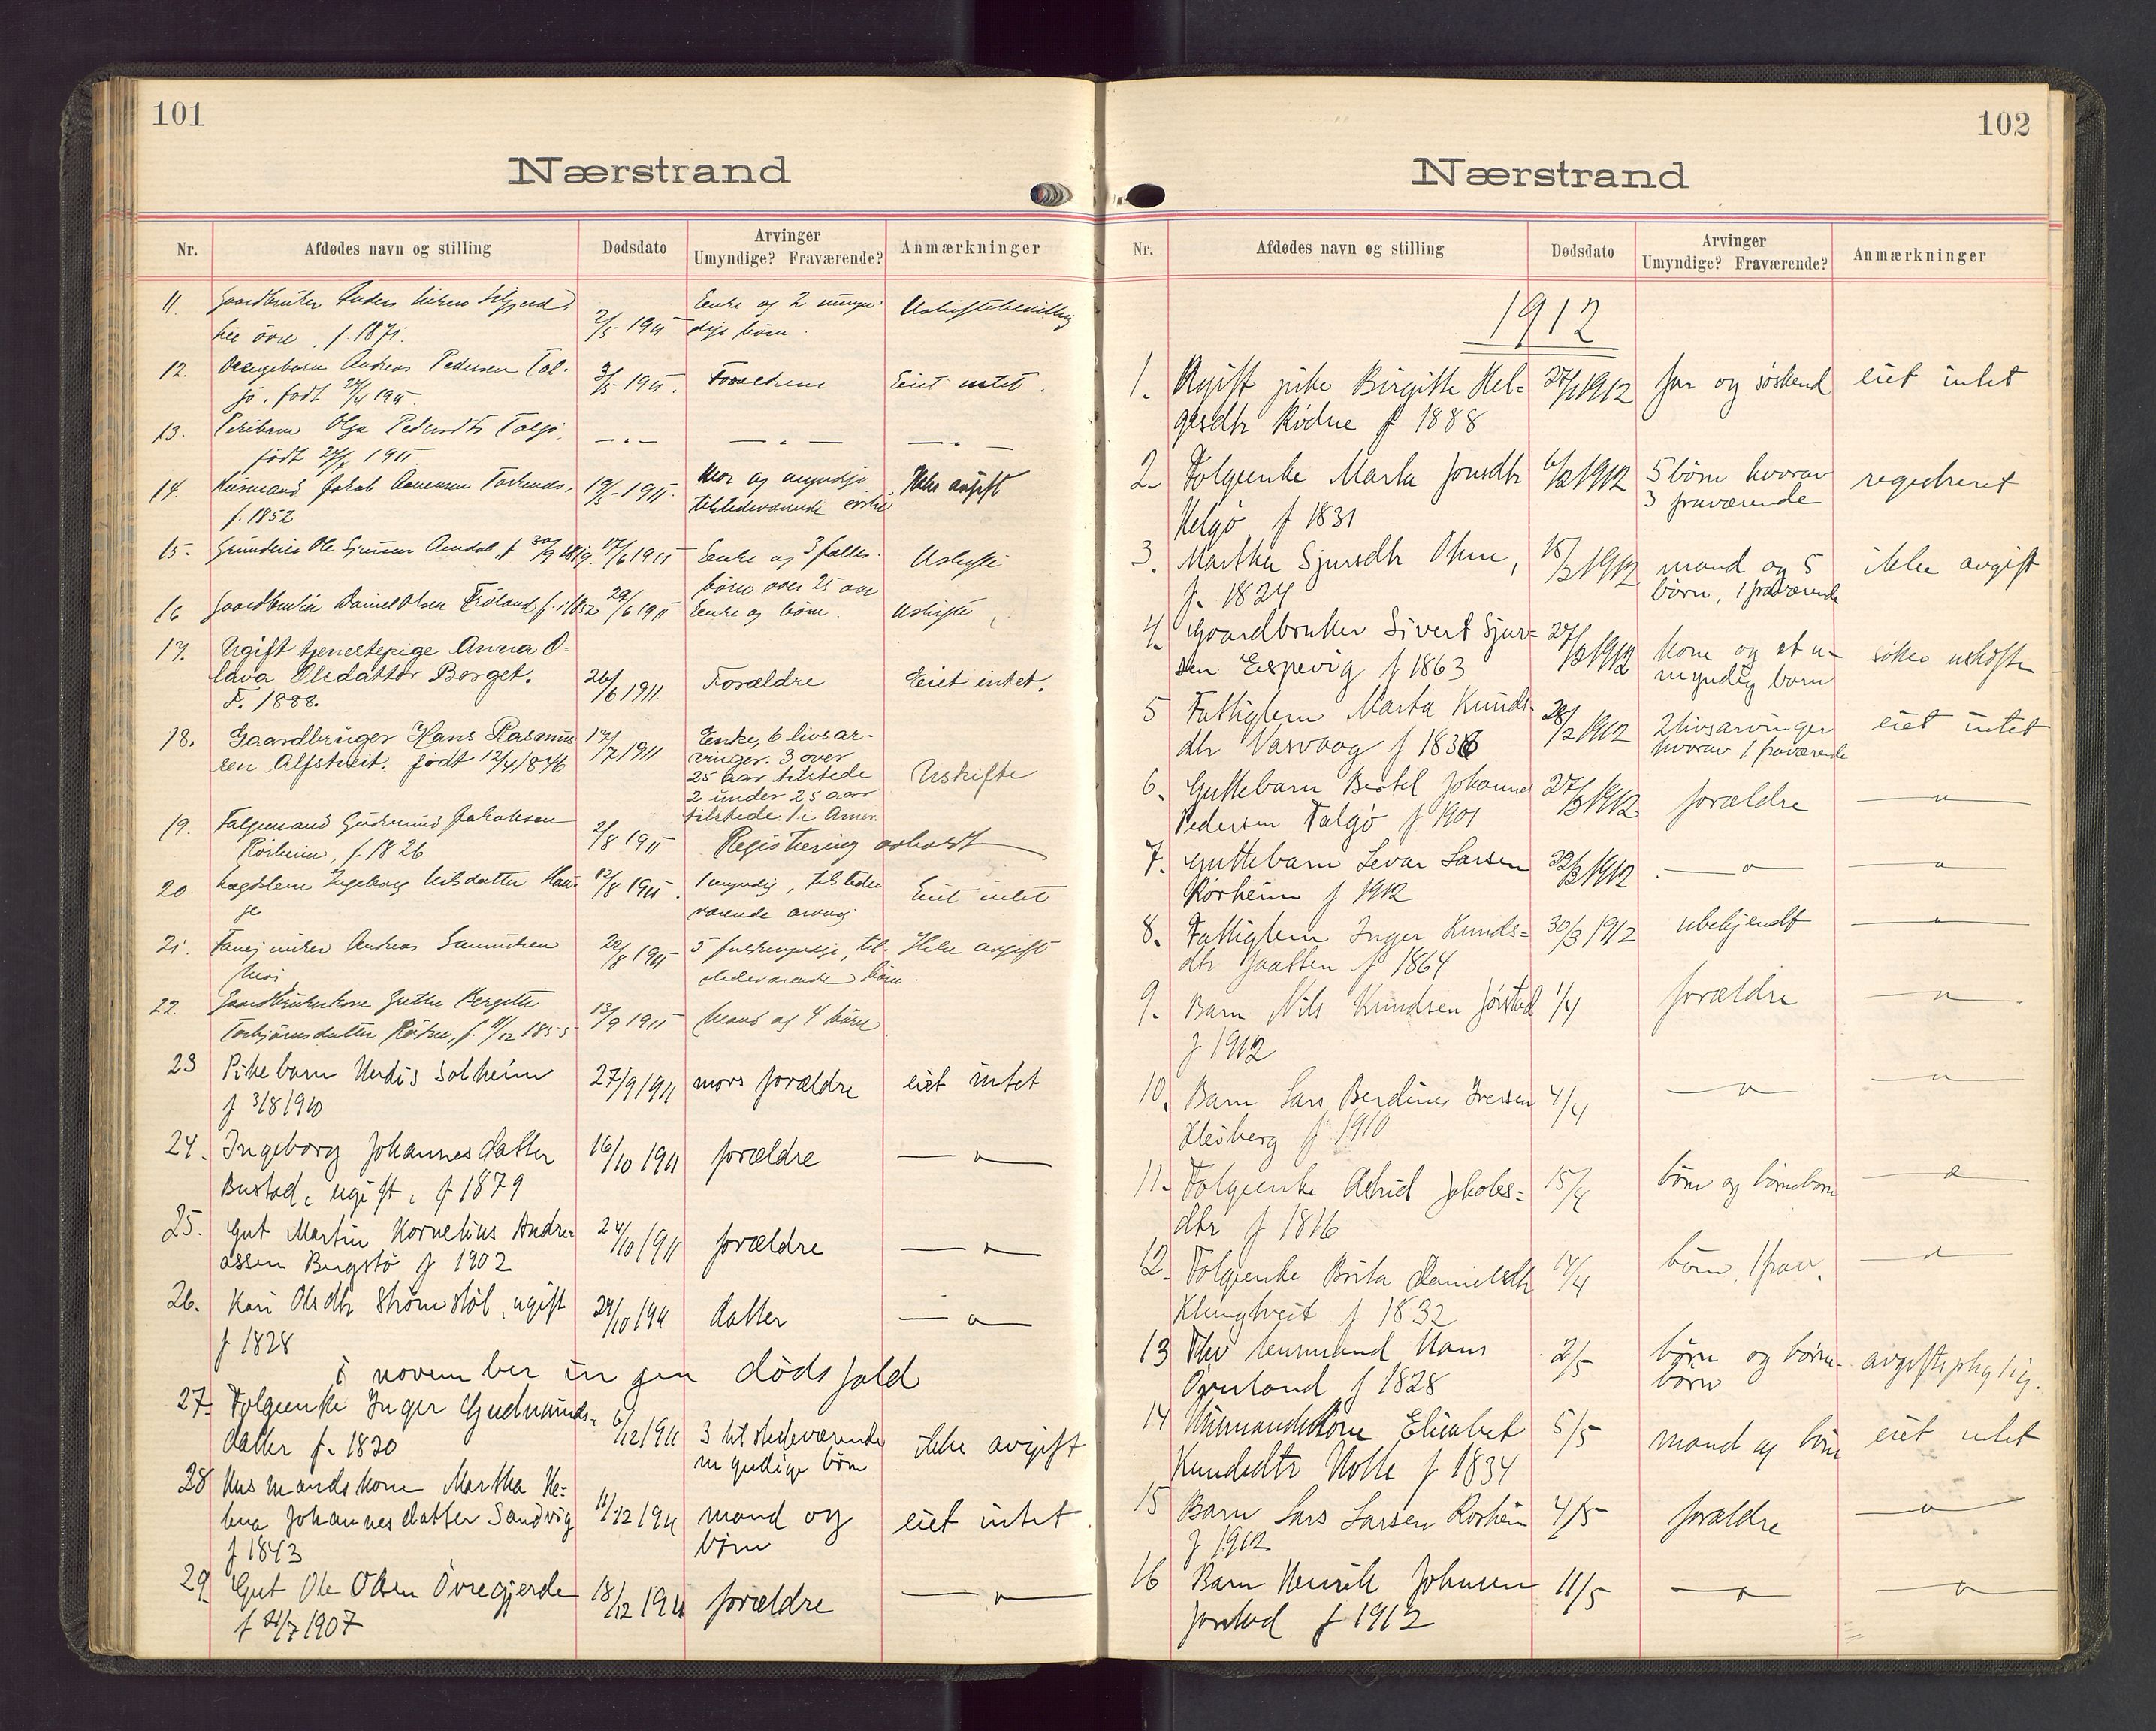 101
Nærstrand
Nr. Afdødes navn og stilling Dødsdato Arvinger Anmærkninger
Umyndige? Fraværende?
11. Gaardbruker Anders
øvre, f. 1871. 2/5 1911 Enke og 2 umyn-
dige børn. Uskiftebevilling
12. Andreas Pedersen Tal-
gø, født 1911. 3/5 1911. Forældrene Eiet intet.
13. Pikebarn Olga Pedersdtr Talgø,
født 1911 — " — — " — — " —
14. Husmand Jakob
f. 1852 19/5 1911. Mor og myndige
tilstedeværende Ikke avgift
15. Ole 17/6 1911 Enke og 3 fælles-
børn over 25 aar Uskifte
16 Gaardbruker Daniel Olsen Frøland f. 1852 29/6 1911 Enke og børn. Uskifte
17. Ugift tjenestepige Anna O-
lava Olsdatter Borget.
F. 1888. 26/6 1911. Forældre Eiet intet.
18. Gaardbruger Hans Rasmus
sen Alfstveit. født 12/4 1846 17/7 1911 Enke, 6 livsar-
vinger. 3 over
25 aar tilstede
2 under 25 aar
tilstede. 1 i Amer. Uskifte
19. Følgemand Gudmund Jakobsen
Rørheim, f. 1826 2/8 1911 Registrering avholdt
20. Lægdslem Ingeborg Nilsdatter Hau-
ge 12/8 1911. 1 myndig, tilstede
værende arving Eiet intet
21. Andreas Samuelsen
22/8 1911 5 fuldmyndige, til-
stedeværende børn. Ikke avgift
22. Gaardbrukerkone Grethe Bergitte
Torbjørnsdatter f. 1855 13/9 1911 Mand og 4 børn
23 Pikebarn Herdis Solheim
f 3/8 1910 27/9 1911 mors forældre eiet intet
24. Ingeborg Johannesdatter
Bustad, ugift, f 1879 16/10 1911 forældre — " —
25. Gut Martin Kornelius Andre-
assen f 1902 24/10 1911 forældre — " —
26. Kari Olsdtr Strømstøl, ugift
f 1828 29/10 1911 datter — " —
i november ingen dødsfald
27. Følgeenke Inger Gudmunds-
datter f. 1820 6/12 1911 3 tilstedeværende
myndige børn ikke avgift
28 Husmandskone Martha He-
lena Johannesdatter Sandvig
f 1843 11/12 1911 mand og
børn eiet intet.
29. Gut Ole Olsen Øvregjerde
f 21/7 1907 18/12 1911 forældre — " —
102
Nærstrand
Nr. Afdødes navn og stilling Dødsdato Arvinger Anmærkninger
Umyndige? Fraværende?
1912
1. Ugift pike Birgitte Hel-
gesdtr Rødne f 1888 27/1 1912 far og søskend eiet intet
2. Følgeenke Marta Jonsdtr
Helgø f 1831 6/2 1912 5 børn hvorav
3 fraværende registreret
3. Martha Sjursdtr Ohm,
f. 1824 15/2 1912 mand og 5
børn, 1 fraværende ikke avgift
4. Gaardbruker Sivert Sjur-
sen Espevig f 1863 27/2 1912 kone og et u-
myndig barn søker uskifte
5 Fattiglem Marta Knuds-
dtr Vasvaag f 1836 28/2 1912 2 livsarvinger
hvorav 1 fraværende eiet intet
6. Guttebarn Bertel Johannes
Pedersen Talgø f 1901 27/3 1912 forældre — " —
7. Guttebarn Levar Larsen
Rørheim f 1912 22/3 1912 — " — — " —
8. Fattiglem Inger Knuds-
dtr Jaatten f 1864 30/3 1912 ubekjendt — " —
9. Barn Nils Knudsen Jørstad
f 1912 1/4 forældre — " —
10. Barn Lars Berdines Iversen
Heiberg f 1910 4/4 — " — — " —
11. Følgeenke Astrid Jakobs-
dtr f 1816 15/4 børn og børnebørn — " —
12. Følgeenke Brita Danielsdtr
Klungtveit f 1832 14/4 børn, 1 frav. — " —
13 Fhv husmand Hans
Øverland f 1828 2/5 børn og børne-
børn avgiftspligtig.
14 Husmandskone Elisabet
Knudsdtr Holte f 1834 5/5 mand og børn eiet intet
15 Barn Lars Larsen Rørheim
f 1912 4/5 forældre — " —
16 Barn Henrik Johnsen
Jørstad f 1912 11/5 — " — — " —